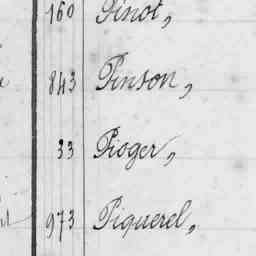 160 Pinot,
843 Pinson,
33 Pioger,
973 Piquerel,